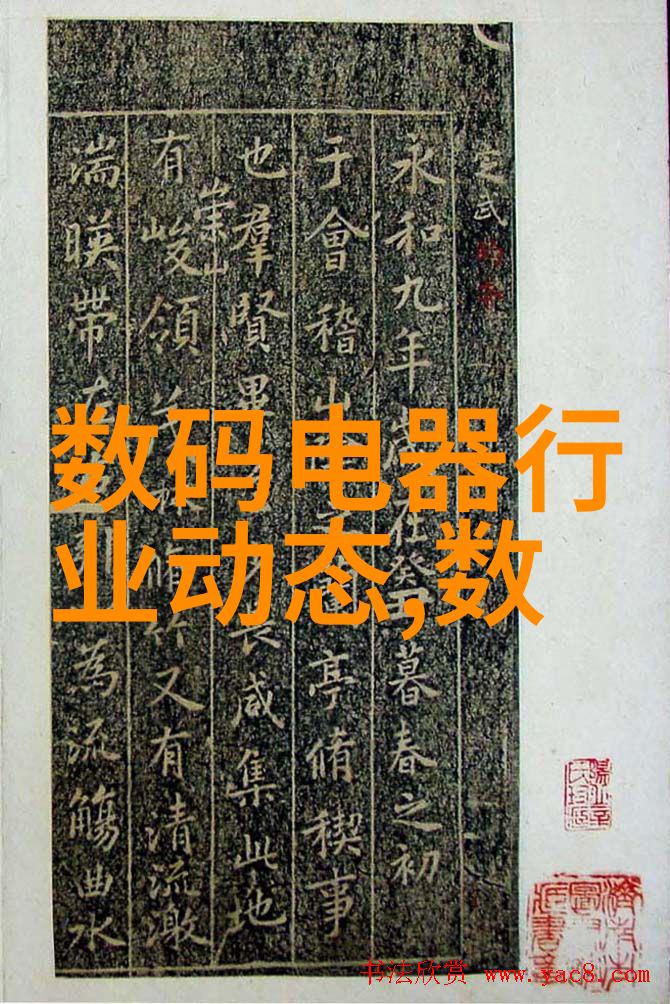 数码电器行
业动态,数
定武
永和九年歲在癸丑暮春之初
于會稽山蘭亭脩稧事
也羣賢畢長咸集此地
崇山
有峻領茂林脩竹又有清流激
湍暎帶左為流觴曲水
书法欣赏 www.yac8.com